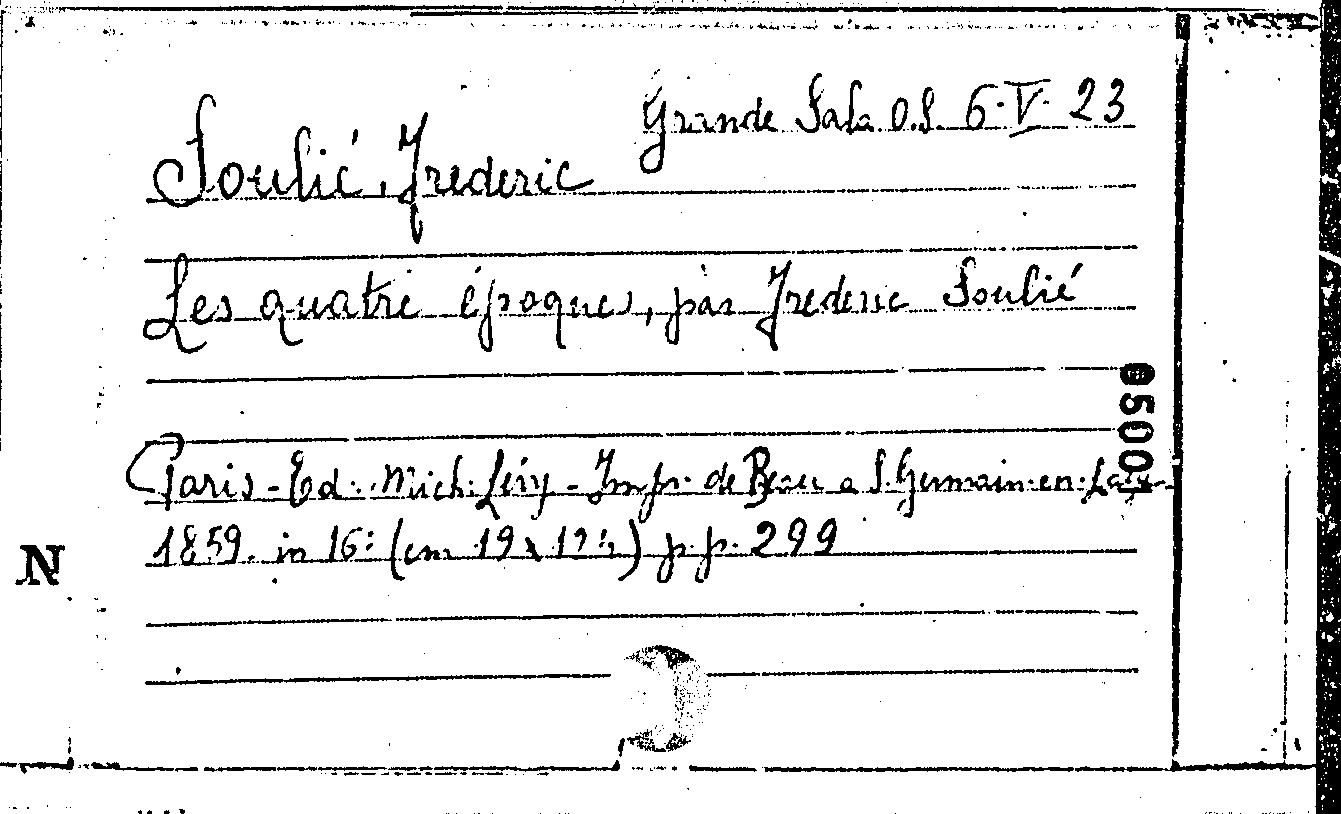 Grande Sala O.S. 6.V. 23
Soulié, Frederic
Les quatre époques, par Frederic Soulié
0500
Paris - Ed. Mich. Lévy - Impr. de Beau a S. Germain-en-Laye
1859. in 16: (cm 19 x 12½) p.p. 299
N